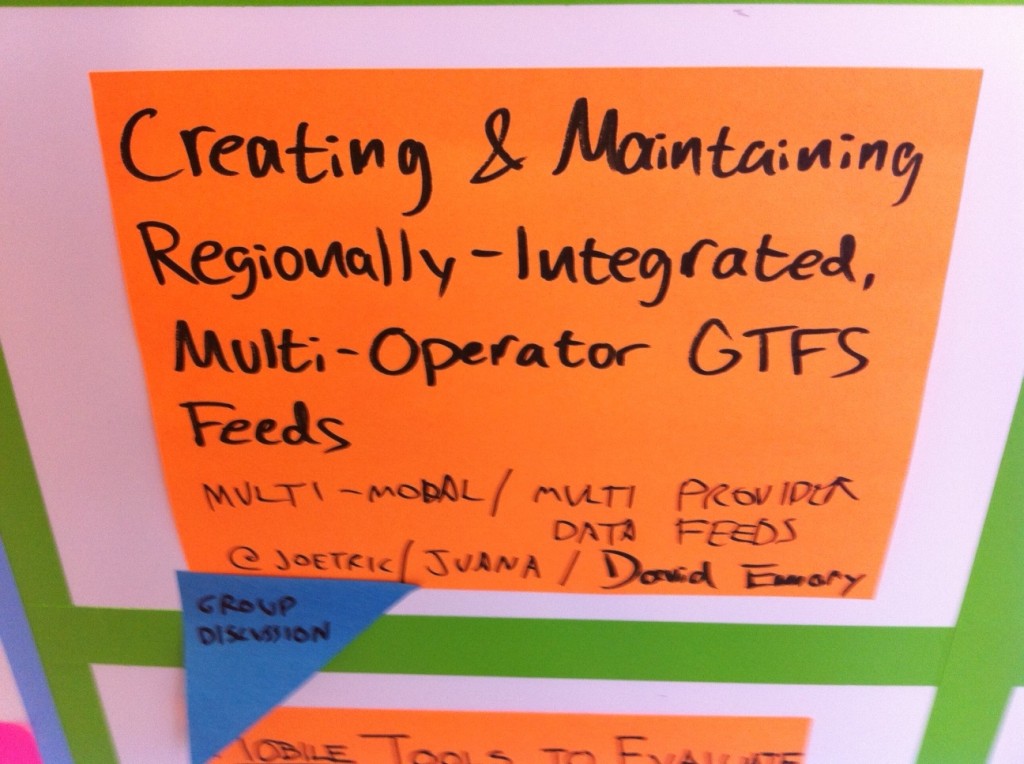 Creating & Maintaining
Regionally-Integrated,
Multi-Operator GTFS
Feeds
MULTI-MODAL/ MULTI PROVIDER
DATA FEEDS
@JOETRIC/JUANA / David Emory
GROUP
DISCUSSION
MOBILE TOOLS TO EVALUATE